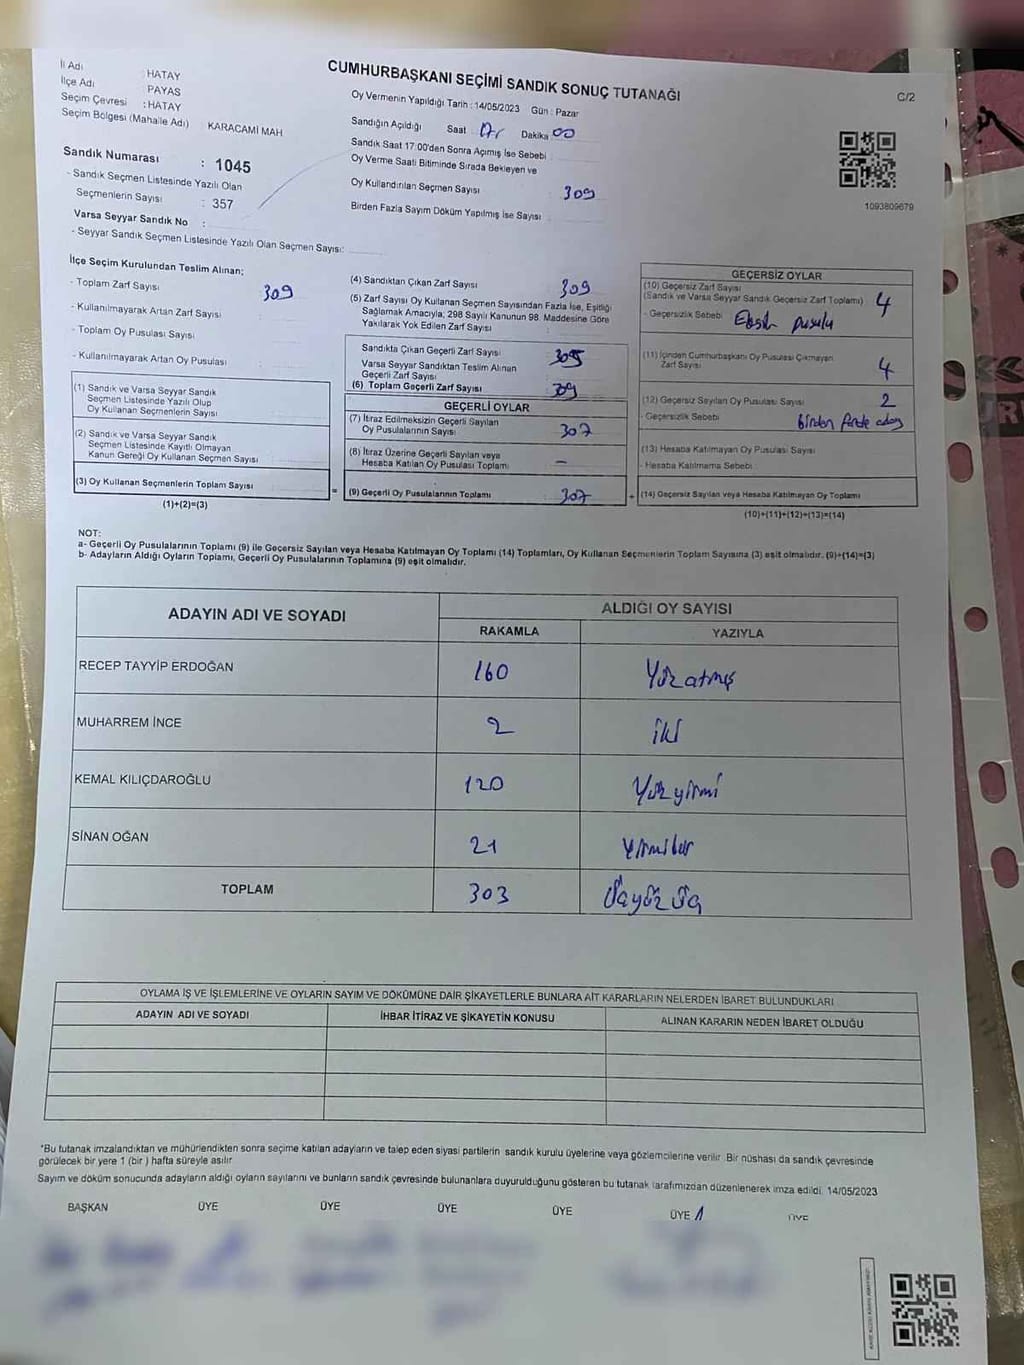 CUMHURBAŞKANI SEÇİMİ SANDIK SONUÇ TUTANAĞI
C/2
İl Adı : HATAY
İlçe Adı PAYAS
Seçim Çevresi : HATAY
Seçim Bölgesi (Mahalle Adı) : KARACAMİ MAH
Sandık Numarası : 1045
- Sandık Seçmen Listesinde Yazılı Olan
Seçmenlerin Sayısı : 357
Varsa Seyyar Sandık No :
- Seyyar Sandık Seçmen Listesinde Yazılı Olan Seçmen Sayısı:
Oy Vermenin Yapıldığı Tarih : 14/05/2023 Gün : Pazar
Sandığın Açıldığı Saat 17 Dakika 00
Sandık Saat 17:00'den Sonra Açımış İse Sebebi
Oy Verme Saati Bitiminde Sırada Bekleyen ve
Oy Kullandırılan Seçmen Sayısı 309
Birden Fazla Sayım Döküm Yapılmış İse Sayısı
1093809679
İlçe Seçim Kurulundan Teslim Alınan;
- Toplam Zarf Sayısı 309
- Kullanılmayarak Artan Zarf Sayısı
- Toplam Oy Pusulası Sayısı
- Kullanılmayarak Artan Oy Pusulası
(1) Sandık ve Varsa Seyyar Sandık
Seçmen Listesinde Yazılı Olup
Oy Kullanan Seçmenlerin Sayısı
(2) Sandık ve Varsa Seyyar Sandık
Seçmen Listesinde Kayıtlı Olmayan
Kanun Gereği Oy Kullanan Seçmen Sayısı
(3) Oy Kullanan Seçmenlerin Toplam Sayısı
(1)+(2)=(3)
(4) Sandıktan Çıkan Zarf Sayısı 309
(5) Zarf Sayısı Oy Kullanan Seçmen Sayısından Fazla İse, Eşitliği
Sağlamak Amacıyla; 298 Sayılı Kanunun 98. Maddesine Göre
Yakılarak Yok Edilen Zarf Sayısı
Sandıkta Çıkan Geçerli Zarf Sayısı 305
Varsa Seyyar Sandıktan Teslim Alınan
Geçerli Zarf Sayısı
(6) Toplam Geçerli Zarf Sayısı 309
GEÇERLİ OYLAR
(7) İtiraz Edilmeksizin Geçerli Sayılan
Oy Pusulalarının Sayısı 307
(8) İtiraz Üzerine Geçerli Sayılan veya
Hesaba Katılan Oy Pusulası Toplamı –
= (9) Geçerli Oy Pusulalarının Toplamı 307
GEÇERSİZ OYLAR
(10) Geçersiz Zarf Sayısı
(Sandık ve Varsa Seyyar Sandık Geçersiz Zarf Toplamı) 4
- Geçersizlik Sebebi Eksik pusula
(11) İçinden Cumhurbaşkanı Oy Pusulası Çıkmayan
Zarf Sayısı 4
(12) Geçersiz Sayılan Oy Pusulası Sayısı 2
- Geçersizlik Sebebi Birden fazla aday
(13) Hesaba Katılmayan Oy Pusulası Sayısı
- Hesaba Katılmama Sebebi
+ (14) Geçersiz Sayılan veya Hesaba Katılmayan Oy Toplamı
(10)+(11)+(12)+(13)=(14)
NOT:
a- Geçerli Oy Pusulalarının Toplamı (9) ile Geçersiz Sayılan veya Hesaba Katılmayan Oy Toplamı (14) Toplamları, Oy Kullanan Seçmenlerin Toplam Sayısına (3) eşit olmalıdır. (9)+(14)=(3)
b- Adayların Aldığı Oyların Toplamı, Geçerli Oy Pusulalarının Toplamına (9) eşit olmalıdır.
ADAYIN ADI VE SOYADI ALDIĞI OY SAYISI
RAKAMLA YAZIYLA
RECEP TAYYİP ERDOĞAN 160 Yüz atmış
MUHARREM İNCE 2 iki
KEMAL KILIÇDAROĞLU 120 Yüz yirmi
SİNAN OĞAN 21 Yirmibir
TOPLAM 303 Üçyüz üç
OYLAMA İŞ VE İŞLEMLERİNE VE OYLARIN SAYIM VE DÖKÜMÜNE DAİR ŞİKAYETLERLE BUNLARA AİT KARARLARIN NELERDEN İBARET BULUNDUKLARI
ADAYIN ADI VE SOYADI İHBAR İTİRAZ VE ŞİKAYETİN KONUSU ALINAN KARARIN NEDEN İBARET OLDUĞU
*Bu tutanak imzalandıktan ve mühürlendikten sonra seçime katılan adayların ve talep eden siyasi partilerin sandık kurulu üyelerine veya gözlemcilerine verilir. Bir nüshası da sandık çevresinde
görülecek bir yere 1 (bir ) hafta süreyle asılır
Sayım ve döküm sonucunda adayların aldığı oyların sayılarını ve bunların sandık çevresinde bulunanlara duyurulduğunu gösteren bu tutanak tarafımızdan düzenlenerek imza edildi. 14/05/2023
BAŞKAN ÜYE ÜYE ÜYE ÜYE ÜYE ÜYE